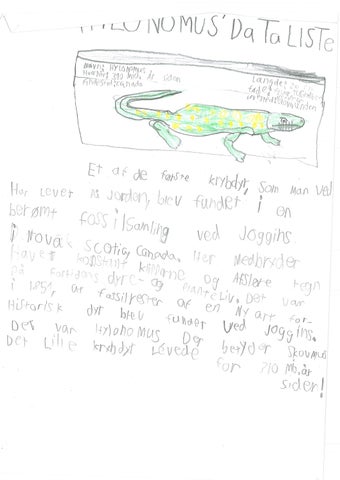 HYLONOMUS' DaTaLISTe
Navn: Hylonomus
Levested: 310 mio. år siden
Længde:
Et af de første krybdyr, som man ved
Har Lever på Jorden, blev fundet i en
berømt fossilsamling ved Joggins
i Nova Scotia, Canada. Her Nedbryder
Havet konstant klipperne og Afsløre tegn
på fortidens dyre- og Planteliv. Det var
i 1859, at fossilrester af en Ny art for-
Historisk dyr blev fundet ved Joggins.
Det var Hylonomus Der betyder Skovmus
Det Lille krybdyr Levede for 310 Mio. år
siden!